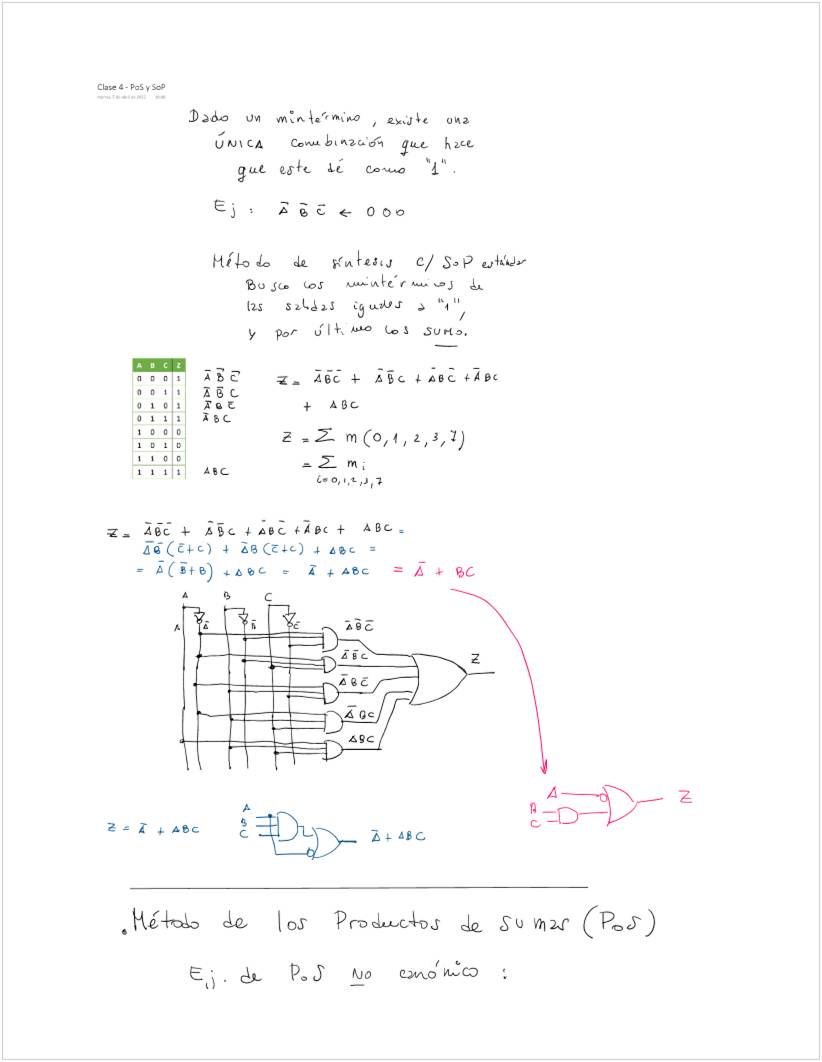 Clase 4 - PoS y SoP
martes, 5 de abril de 2022
Dado un mintérmino, existe una
ÚNICA combinación que hace
que este dé como "1".
Ej: A̅ B̅ C̅ ← 000
Método de síntesis c/ SoP estándar
Busco los mintérminos de
las salidas iguales a "1",
y por último los SUMO.
A B C Z
0 0 0 1 A̅ B̅ C̅
0 0 1 1 A̅ B̅ C
0 1 0 1 A̅ B C̅
0 1 1 1 A̅ B C
1 0 0 0
1 0 1 0
1 1 0 0
1 1 1 1 ABC
Z = A̅B̅C̅ + A̅B̅C + A̅BC̅ + A̅BC
+ ABC
Z = Σ m(0,1,2,3,7)
= Σ mi
i=0,1,2,3,7
Z = A̅B̅C̅ + A̅B̅C + A̅BC̅ + A̅BC + ABC =
A̅B̅(C̅+C) + A̅B(C̅+C) + ABC =
= A̅(B̅+B) + ABC = A̅ + ABC = A̅ + BC
A B C
A A̅ B̅ C̅
A̅B̅C̅
A̅B̅C
Z
A̅BC̅
A̅BC
ABC
A
B
C
Z
Z = A̅ + ABC
A
B
C
A̅ + ABC
. Método de los Productos de sumas (PoS)
Ej. de PoS No canónico :